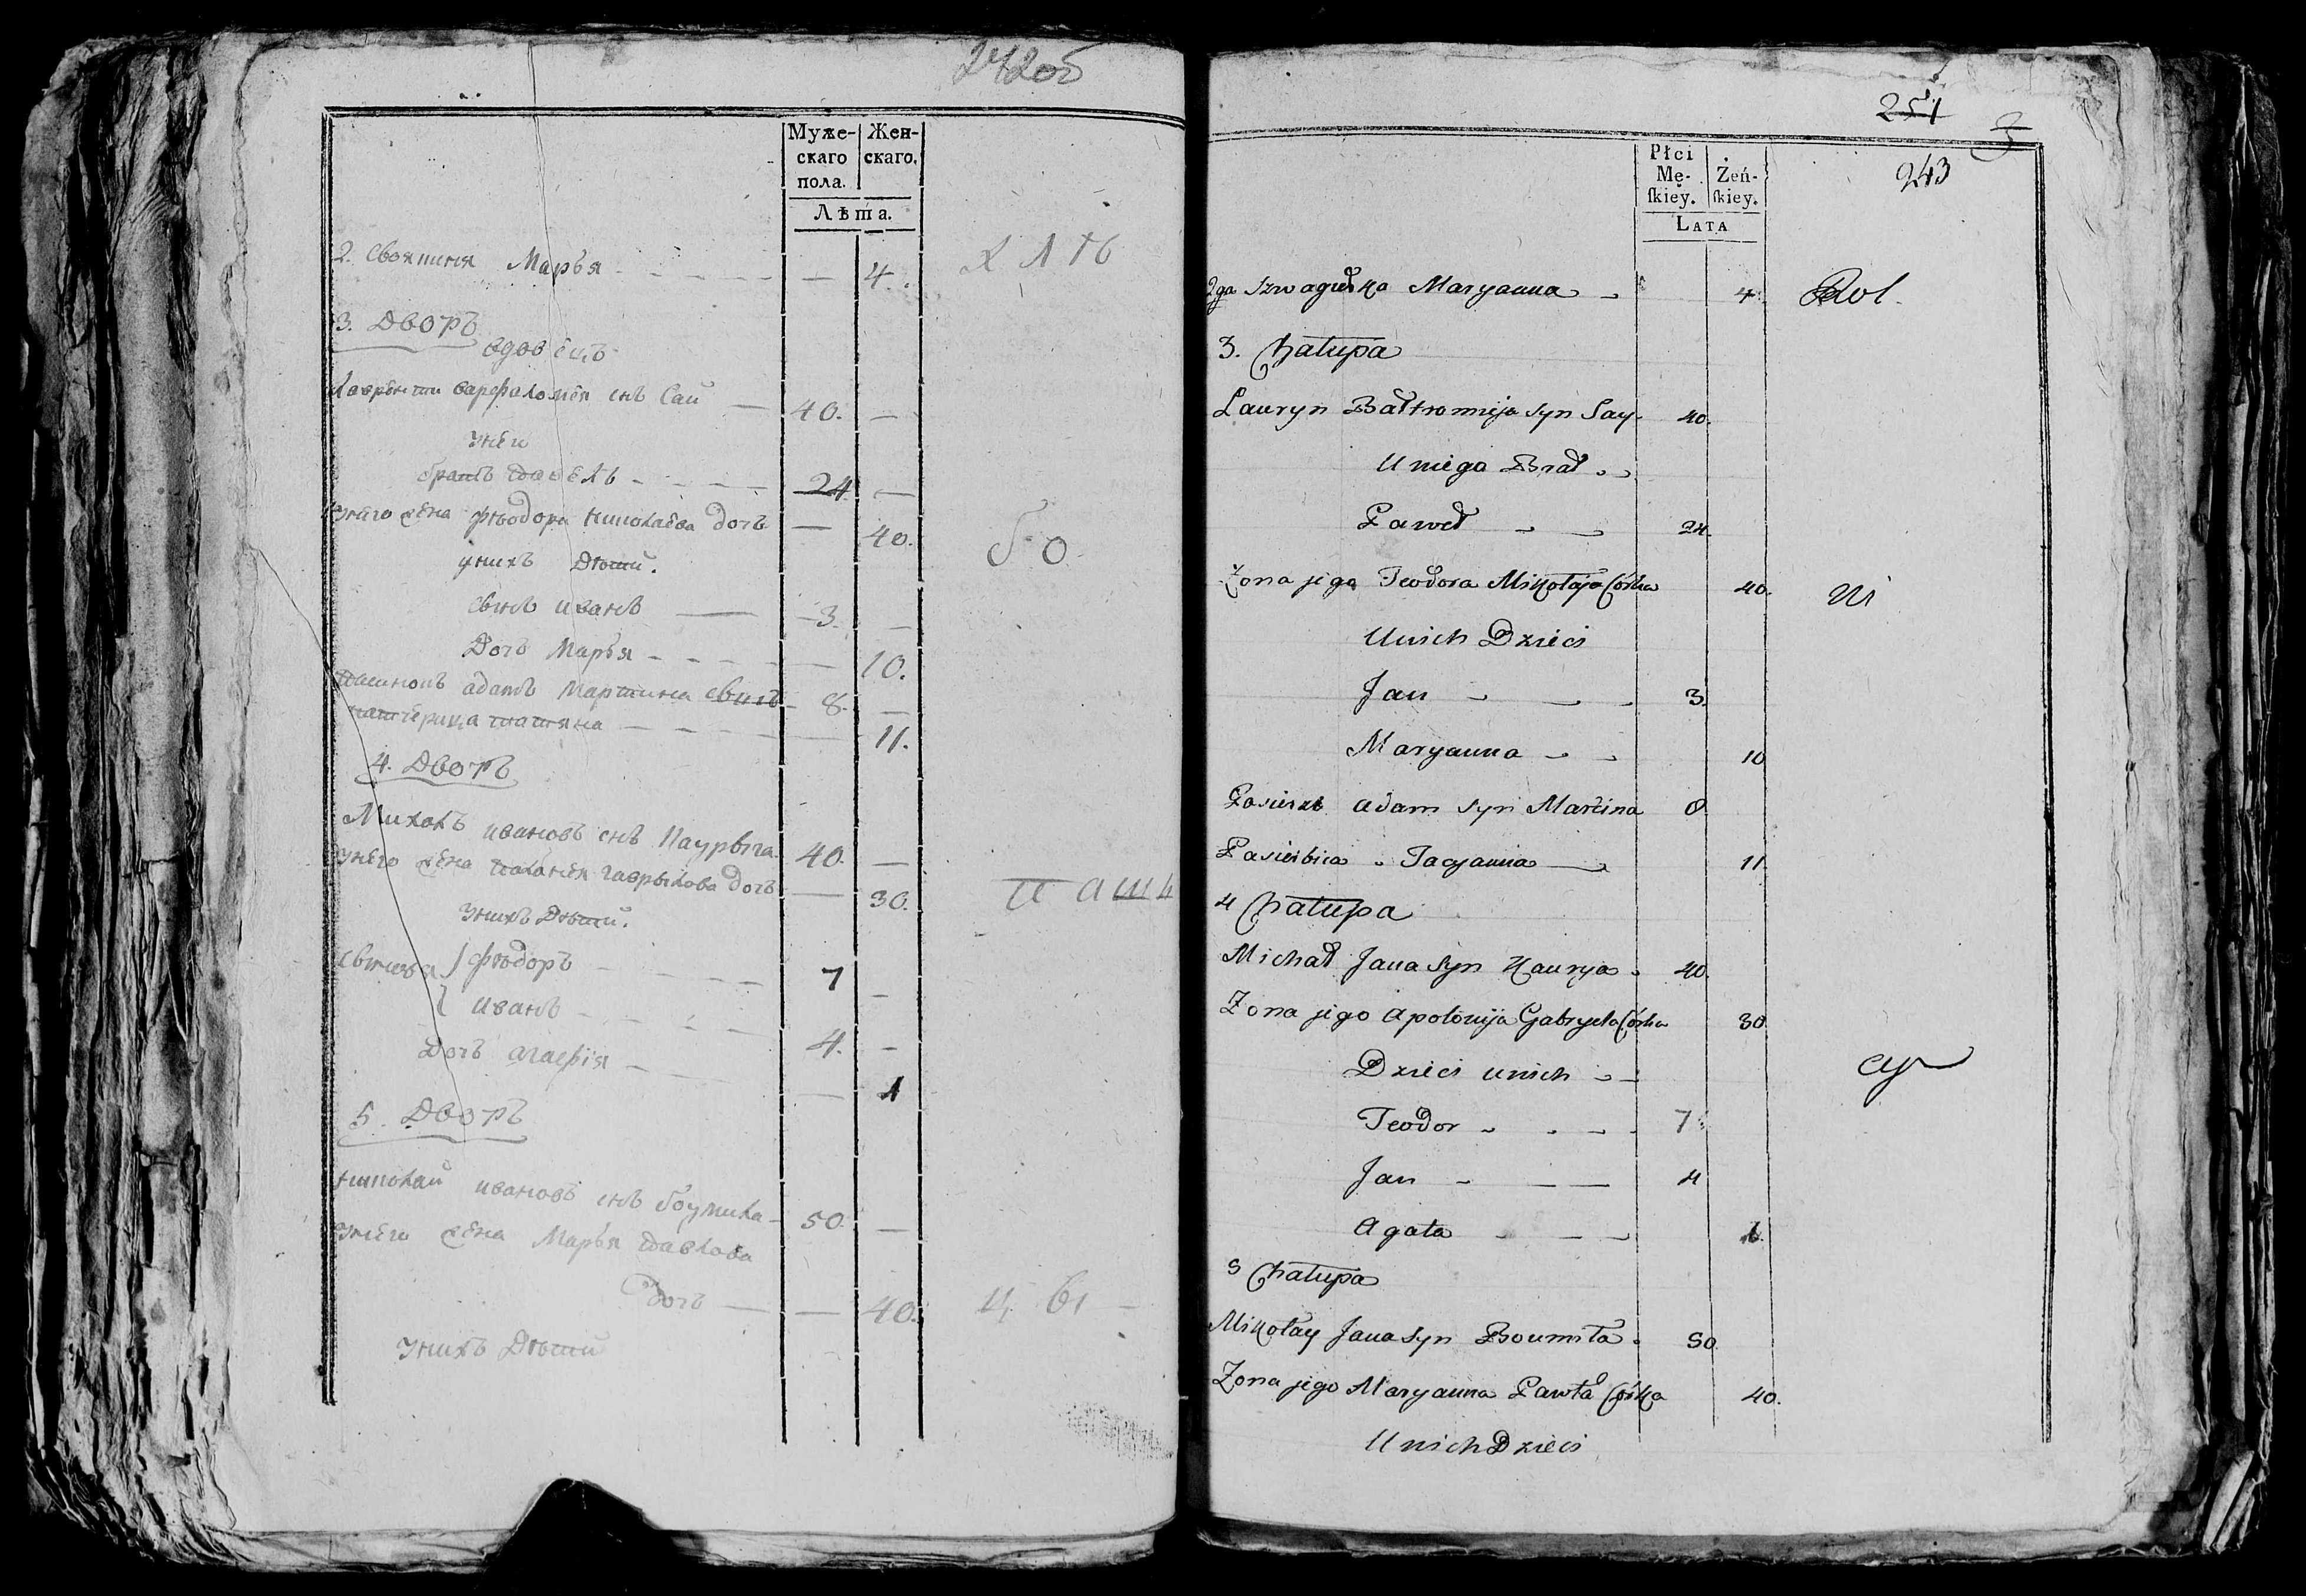 242об
Муже-
скаго
пола.
Жен-
скаго.
Лѣта.
2. Своякиня Марья - - - - — 4.
хлѣб
3. Дворъ
вдовецъ
Лаврѣнти варфаломѣя снъ Сай — 40. —
унѣго
братъ павѣлъ - - - - 24 —
унѣго жѣна фѣодора николаѣва дочь — 40.
бо
унихъ Дѣти.
сынъ иванъ — 3. —
Дочь Марья - - - - — 10.
пасинокъ адамъ мартина сынъ - 8. —
патчерица татяна — - - - — 11.
4. Дворъ
Михалъ ивановъ снъ Наурыга 40. —
унѣго жѣна паланѣя гаврылова дочь — 30.
паш
унихъ Дѣти.
сыновья фѣодоръ - - - 7 —
иванъ - - - - 4. —
Дочь агафія - - — 1
5. Дворъ
николай ивановъ снъ боумила - 50. —
унѣго жѣна Марья павлова
дочь — — 40.
цы —
унихъ Дѣти
251
3
243
Płci
Mę-
ſkiey.
Żeń-
ſkiey.
LATA
2ga Szwagierka Maryanna - 4. Rol.
3. Chałupa
Lauryn Bałtromieja syn Say - 40.
U niego Brat
Paweł - - 24.
Żona jego Teodora Mikołaja Córka 40. ni
U nich Dzieci
Jan - - - 3.
Maryanna - - 10
Pasierzb Adam syn Marcina 8
Pasierbica - Tacyanna - 11.
4 Chałupa
Michał Jana Syn Nauryga - 40.
Żona jego Apolonija Gabryela Córka 30
Dzieci u nich - -
cy
Teodor - - - - 7
Jan - - - 4
Agata - - - 1.
5 Chałupa
Mikołay Jana Syn Boumiła - 50
Żona jego Maryanna Pawła Córka 40.
U nich Dzieci